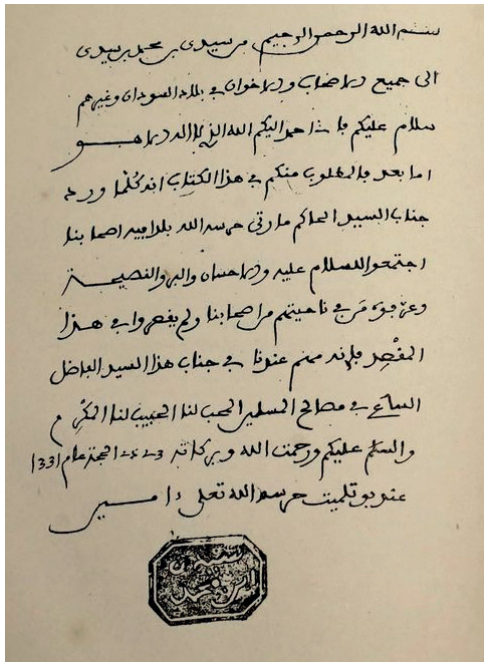 بسم الله الرحمن الرحيم من سيدي بن محمد بن سيدي
الى جميع الاصحاب والاخوان في بلاد السودان وغيرهم
سلام عليكم فانى احمد اليكم الله الذي لا اله الا هو
اما بعد فالمطلوب منكم في هذا الكتاب انه كلما ورد
جناب السيد الحاكم مارتي حرسه الله بلدا فيه اصحابنا
اجتمعوا للسلام عليه والاحسان والبر والنصيحة
من في ناحيتهم من اصحابنا ولم يقصروا في هذا
المقصد فانه مهم عندنا في جناب هذا السيد الفاضل
الساع في مصالح المسلمين المحب لنا الحبيب لنا المكرم
والسلام عليكم ورحمت الله وبركاته 23 الحجة عام 1331
عند بوتلميت حرسه الله تعلى ءامين
سيدي
ابن محمد